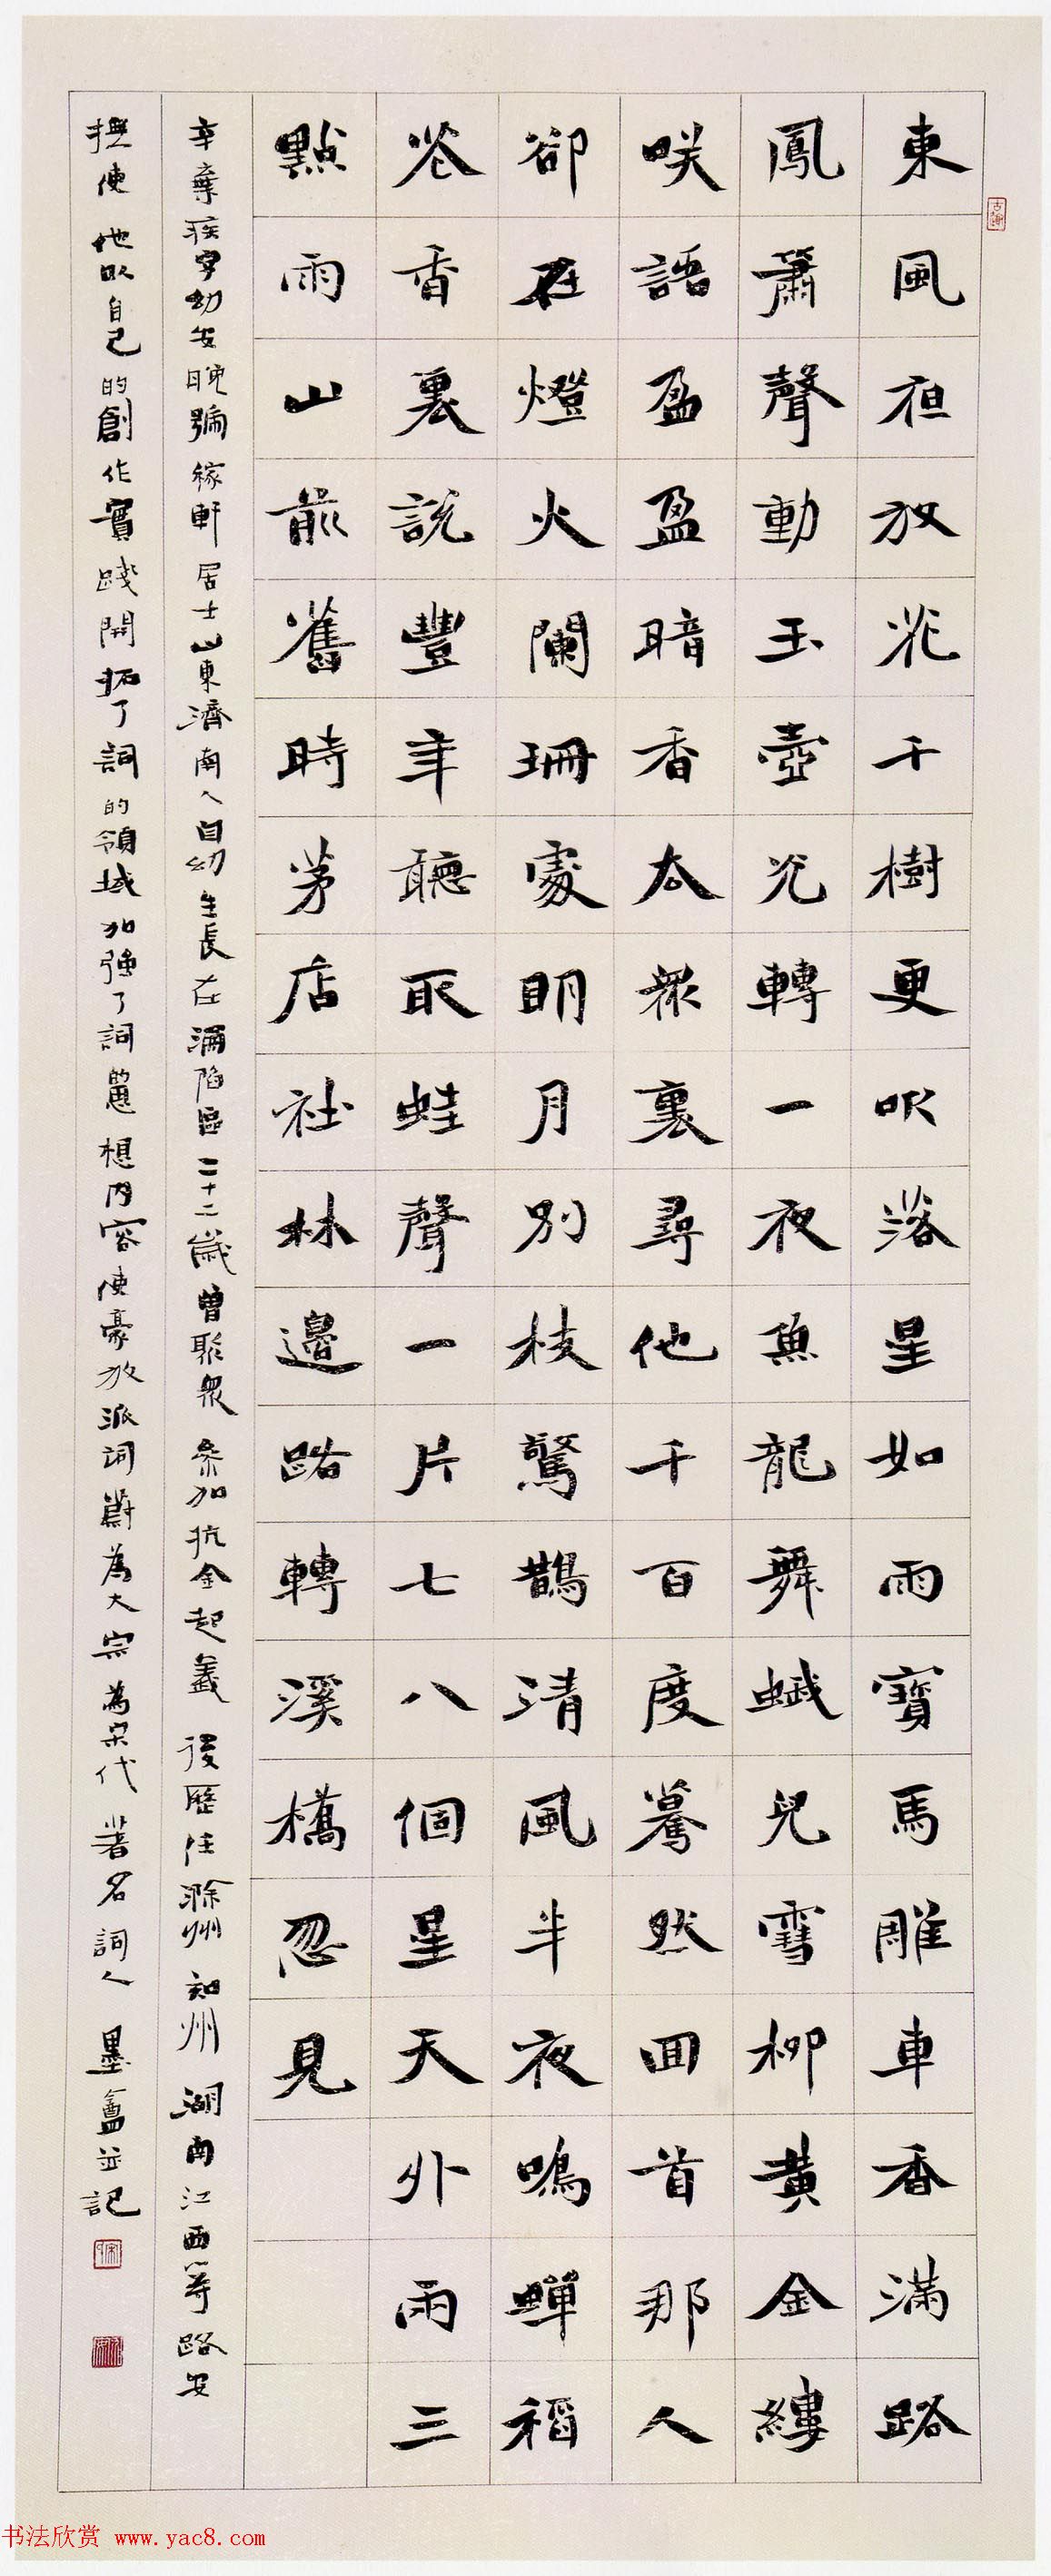 東風夜放花千樹更吹落星如雨寶馬雕車香滿路
鳳簫聲動玉壺光轉一夜魚龍舞蛾兒雪柳黃金縷
咲語盈盈暗香去眾裏尋他千百度驀然回首那人
卻在燈火闌珊處明月別枝驚鵲清風半夜鳴蟬稻
花香裏說豐年聽取蛙聲一片七八個星天外兩三
點雨山前舊時茅店社林邊路轉溪橋忽見
辛棄疾字幼安晚號稼軒居士山東濟南人自幼生長在淪陷區二十二歲曾聚眾參加抗金起義後歷任滁州知州湖南江西等路安
撫使他以自己的創作實踐開拓了詞的領域加強了詞思想內容使豪放派詞蔚為大宗為宋代著名詞人墨盦並記
书法欣赏 www.yac8.com